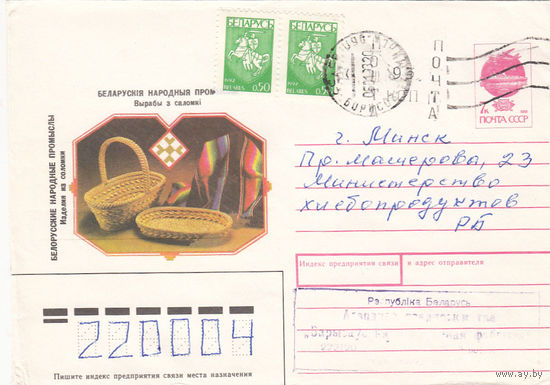 БЕЛАРУСЬ БЕЛАРУСЬ
1992 BELARUS 0,50 1992 BELARUS 0,50
ПОЧТА
7к
ПОЧТА СССР
БЕЛАРУСКІЯ НАРОДНЫЯ ПРОМ
Вырабы з саломкі
БЕЛОРУССКИЕ НАРОДНЫЕ ПРОМЫСЛЫ
Изделия из соломки
г. Минск
Пр. Машерова, 23
Министерство
хлебопродуктов
РБ
Индекс предприятия связи и адрес отправителя
Рэспубліка Беларусь
220004
Пишите индекс предприятия связи места назначения
www.ay.by